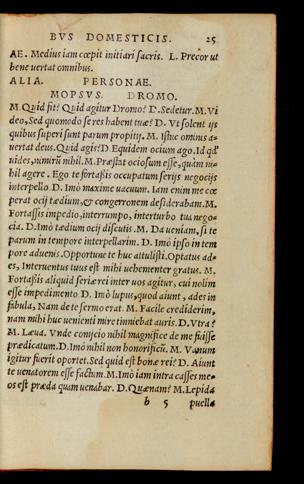 BVS DOMESTICIS. 25
AE. Medius iam cœpit initiari sacris. L. Precor ut
bene uertat omnibus.
ALIA. PERSONAE.
MOPSVS. DROMO.
M. QVid fit? Quid agitur Dromo? D. Sedetur. M. Vi
deo, Sed quomodo se res habent tuæ? D. Vt solent ijs
quibus superi sunt parum propitij. M. Istuc ominis a-
uertat deus. Quid agis? D Equidem ocium ago. Id qđ
uides, nimirū nihil. M. Præstat ociosum esse, quàm ni-
hil agere. Ego te fortaßis occupatum serijs negocijs
interpello. D. Imò maxime uacuum. Iam enim me cœ
perat ocij tædium, & congerronem desiderabam. M.
Fortaßis impedio, interrumpo, interturbo tua nego-
cia. D. Imò tædium ocij discutis. M. Da ueniam, si te
parum in tempore interpellarim. D. Imò ipso in tem
pore aduenis. Opportune te huc attulisti. Optatus ad-
es, Interuentus tuus est mihi uehementer gratus. M.
Fortaßis aliquid seriæ rei inter uos agitur, cui nolim
esse impedimento. D. Imò lupus, quod aiunt, ades in
fabula, Nam de te sermo erat. M. Facile crediderim,
nam mihi huc uenienti mire tinniebat auris. D. Vtra?
M. Læua. Vnde conijcio nihil magnifice de me fuisse
prædicatum. D. Imò nihil non honorificū. M. Vanum
igitur fuerit oportet. Sed quid est bonæ rei? D. Aiunt
te uenatorem esse factum. M. Imò iam intra casses me-
os est præda quam uenabar. D. Quænam? M. Lepida
b 5 puella